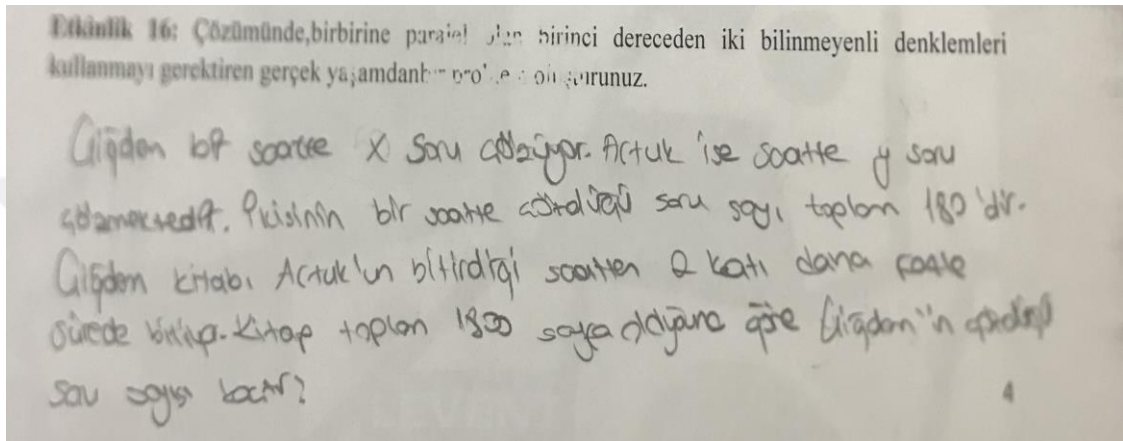 Etkinlik 16: Çözümünde,birbirine paralel olan birinci dereceden iki bilinmeyenli denklemleri
kullanmayı gerektiren gerçek yaşamdan bir problem oluşturunuz.
Çiğdem bir saatte x soru çözüyor. Artuk ise saatte y soru
çözmektedir. İkisinin bir saatte çözdüğü soru sayı toplam 180'dir.
Çiğdem kitabı Artuk'un bitirdiği saatten 2 katı daha fazla
sürede bitiriyor. Kitap toplam 1800 sayfa olduğuna göre Çiğdem'in çözdüğü
soru sayısı kaçtır?
4